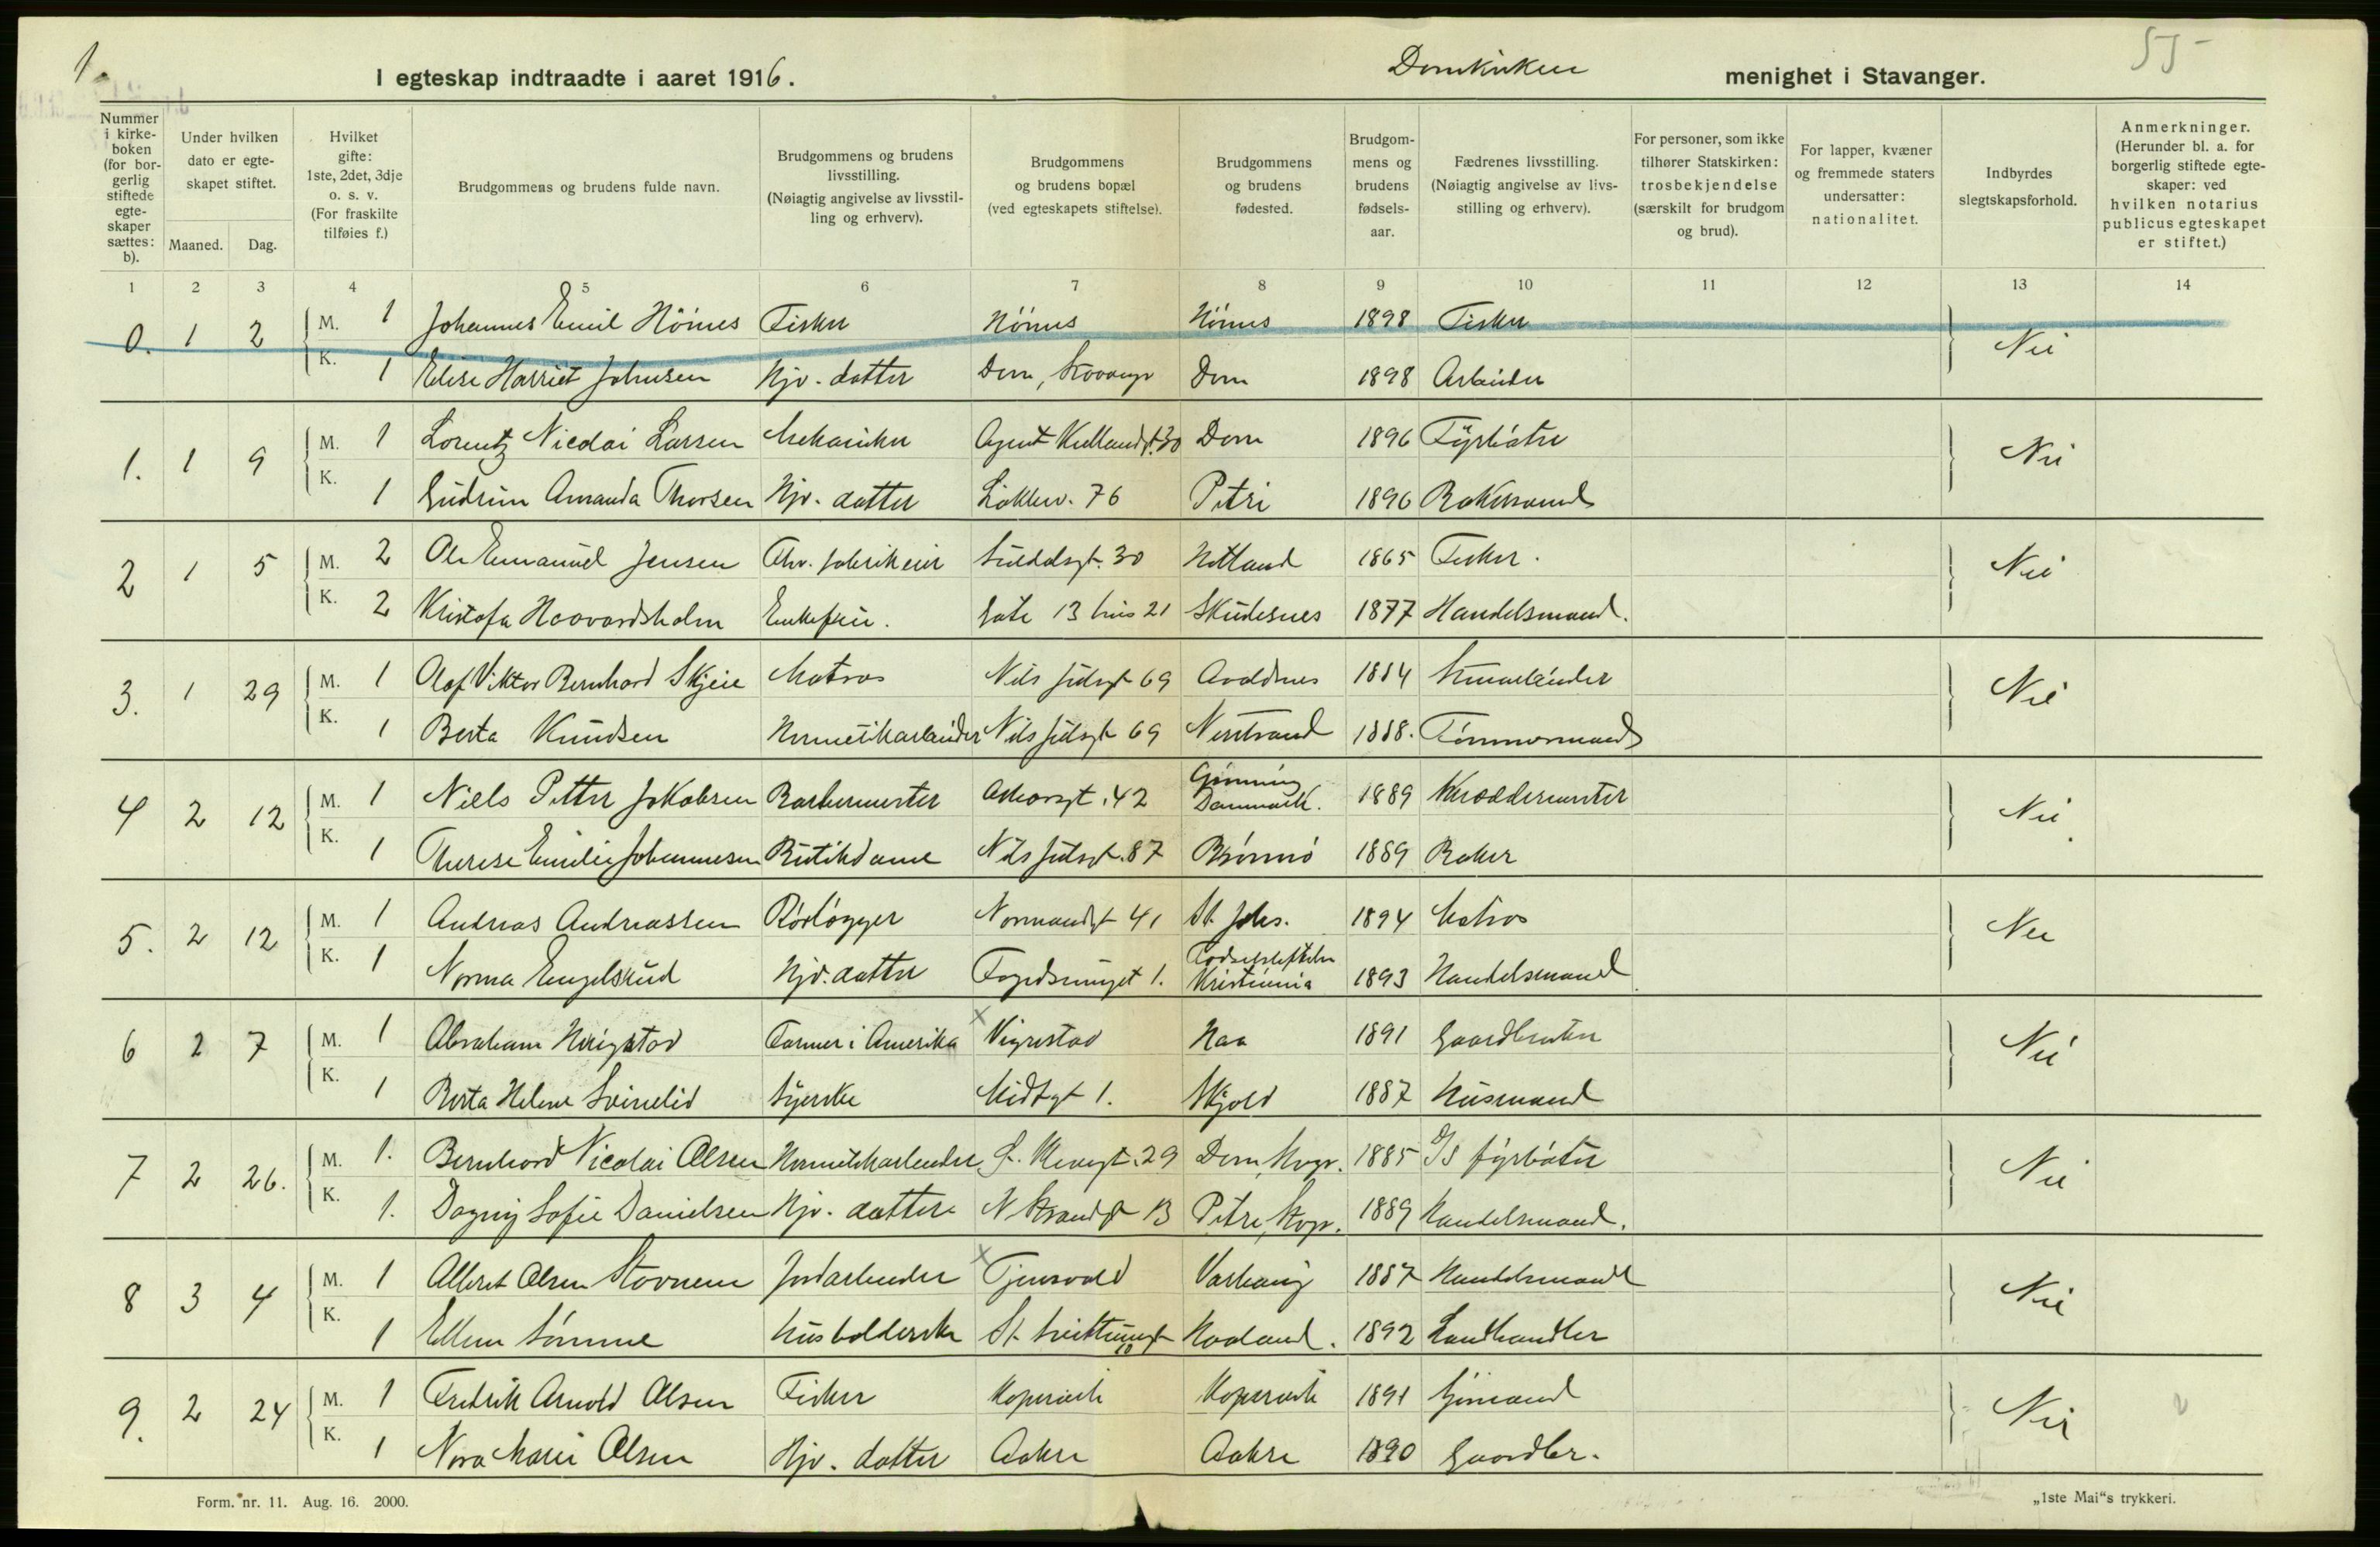 1.
I egteskap indtraadte i aaret 1916. Domkirken menighet i Stavanger. 55
Nummer i kirkeboken (for borgerlig stiftede egteskaper sættes: b). Under hvilken dato er egteskapet stiftet. Maaned. Dag. Hvilket gifte: 1ste, 2det, 3dje o. s. v. (For fraskilte tilføies f.) Brudgommens og brudens fulde navn. Brudgommens og brudens livsstilling. (Nøiagtig angivelse av livsstilling og erhverv). Brudgommens og brudens bopæl (ved egteskapets stiftelse). Brudgommens og brudens fødested. Brudgommens og brudens fødselsaar. Fædrenes livsstilling. (Nøiagtig angivelse av livsstilling og erhverv). For personer, som ikke tilhører Statskirken: trosbekjendelse (særskilt for brudgom og brud). For lapper, kvæner og fremmede staters undersatter: nationalitet. Indbyrdes slegtskapsforhold. Anmerkninger. (Herunder bl. a. for borgerlig stiftede egteskaper: ved hvilken notarius publicus egteskapet er stiftet.)
1 2 3 4 5 6 7 8 9 10 11 12 13 14
0. 1 2 M. 1 Johannes Emil Fisker 1898 Fisker
K. 1 Elise Harriet Johnsen Hjv. datter Dom, Dom 1898 Arbeider Nei
1. 1 9 M. 1 Lorentz Nicolai Larsen Mekaniker Agent Kiellandgt. 30 Dom 1896 Fyrbøter Nei
K. 1 Gudrun Amanda Thorsen Hjv. datter Løkkev. 76 Petri 1896
2 1 5 M. 2 Ole Emanuel Jensen Suldalsgt. 30 1865 Fisker. Nei
K. 2 Kristofa Haavardsholm Enkefrue. Gate 13 hus 21 Skudesnes 1877 Handelsmand.
3. 1 29 M. 1 Olaf Viktor Bernhard Skjeie Matros Nils Juelsgt 69 Avaldsnes 1884 Nei
K. 1 Berta Knudsen Hermetikarbeider Nils Juelsgt 69 Nerstrand 1888. Tømmermand
4 2 12 M. 1 Niels Petter Jakobsen Barbermester 42 Danmark. 1889 Skræddermester Nei
K. 1 Therese Emilie Johannesen Butikdame Nils Juelsgt. 87 Brønnø 1889 Baker
5. 2 12 M. 1 Andreas Andreassen Rørlægger Normandsgt 41 St. Johs. 1894 Matros Nei
K. 1 Norma Engelskud Hjv. datter 1. Fødselsstiftelsen Kristiania 1893 Handelsmand
6 2 7 M. 1 Abraham Farmer i Amerika x Vigrestad Haa 1891 Gaardbruker Nei
K. 1 Berta Helene Svinelid Syerske Midtgt 1. Skjold 1887 Husmand
7 2 26. M. 1. Bernhard Nicolai Olsen Hermetikarbeider 29 Dom, Svgr. 1885 D/S fyrbøter Nei
K. 1. Dagny Sofie Danielsen Hjv. datter N Strandgt 13 Petri, Svgr. 1889 Handelsmand.
8 3 4 M. 1 Olsen Stovnem Jordarbeider x Tjensvold Varhaug 1887 Handelsmand Nei
K. 1 Ellen Sømme Husholderske St. 10 Haaland. 1892 Landhandler
9. 2 24 M. 1 Fredrik Arnold Olsen Fisker Kopervik Kopervik 1891 Sjømand Nei
K. 1 Nora Marie Olsen Hjv. datter Aakre Aakre 1890 Gaardbr.
Form. nr. 11. Aug. 16. 2000. „1ste Mai“s trykkeri.